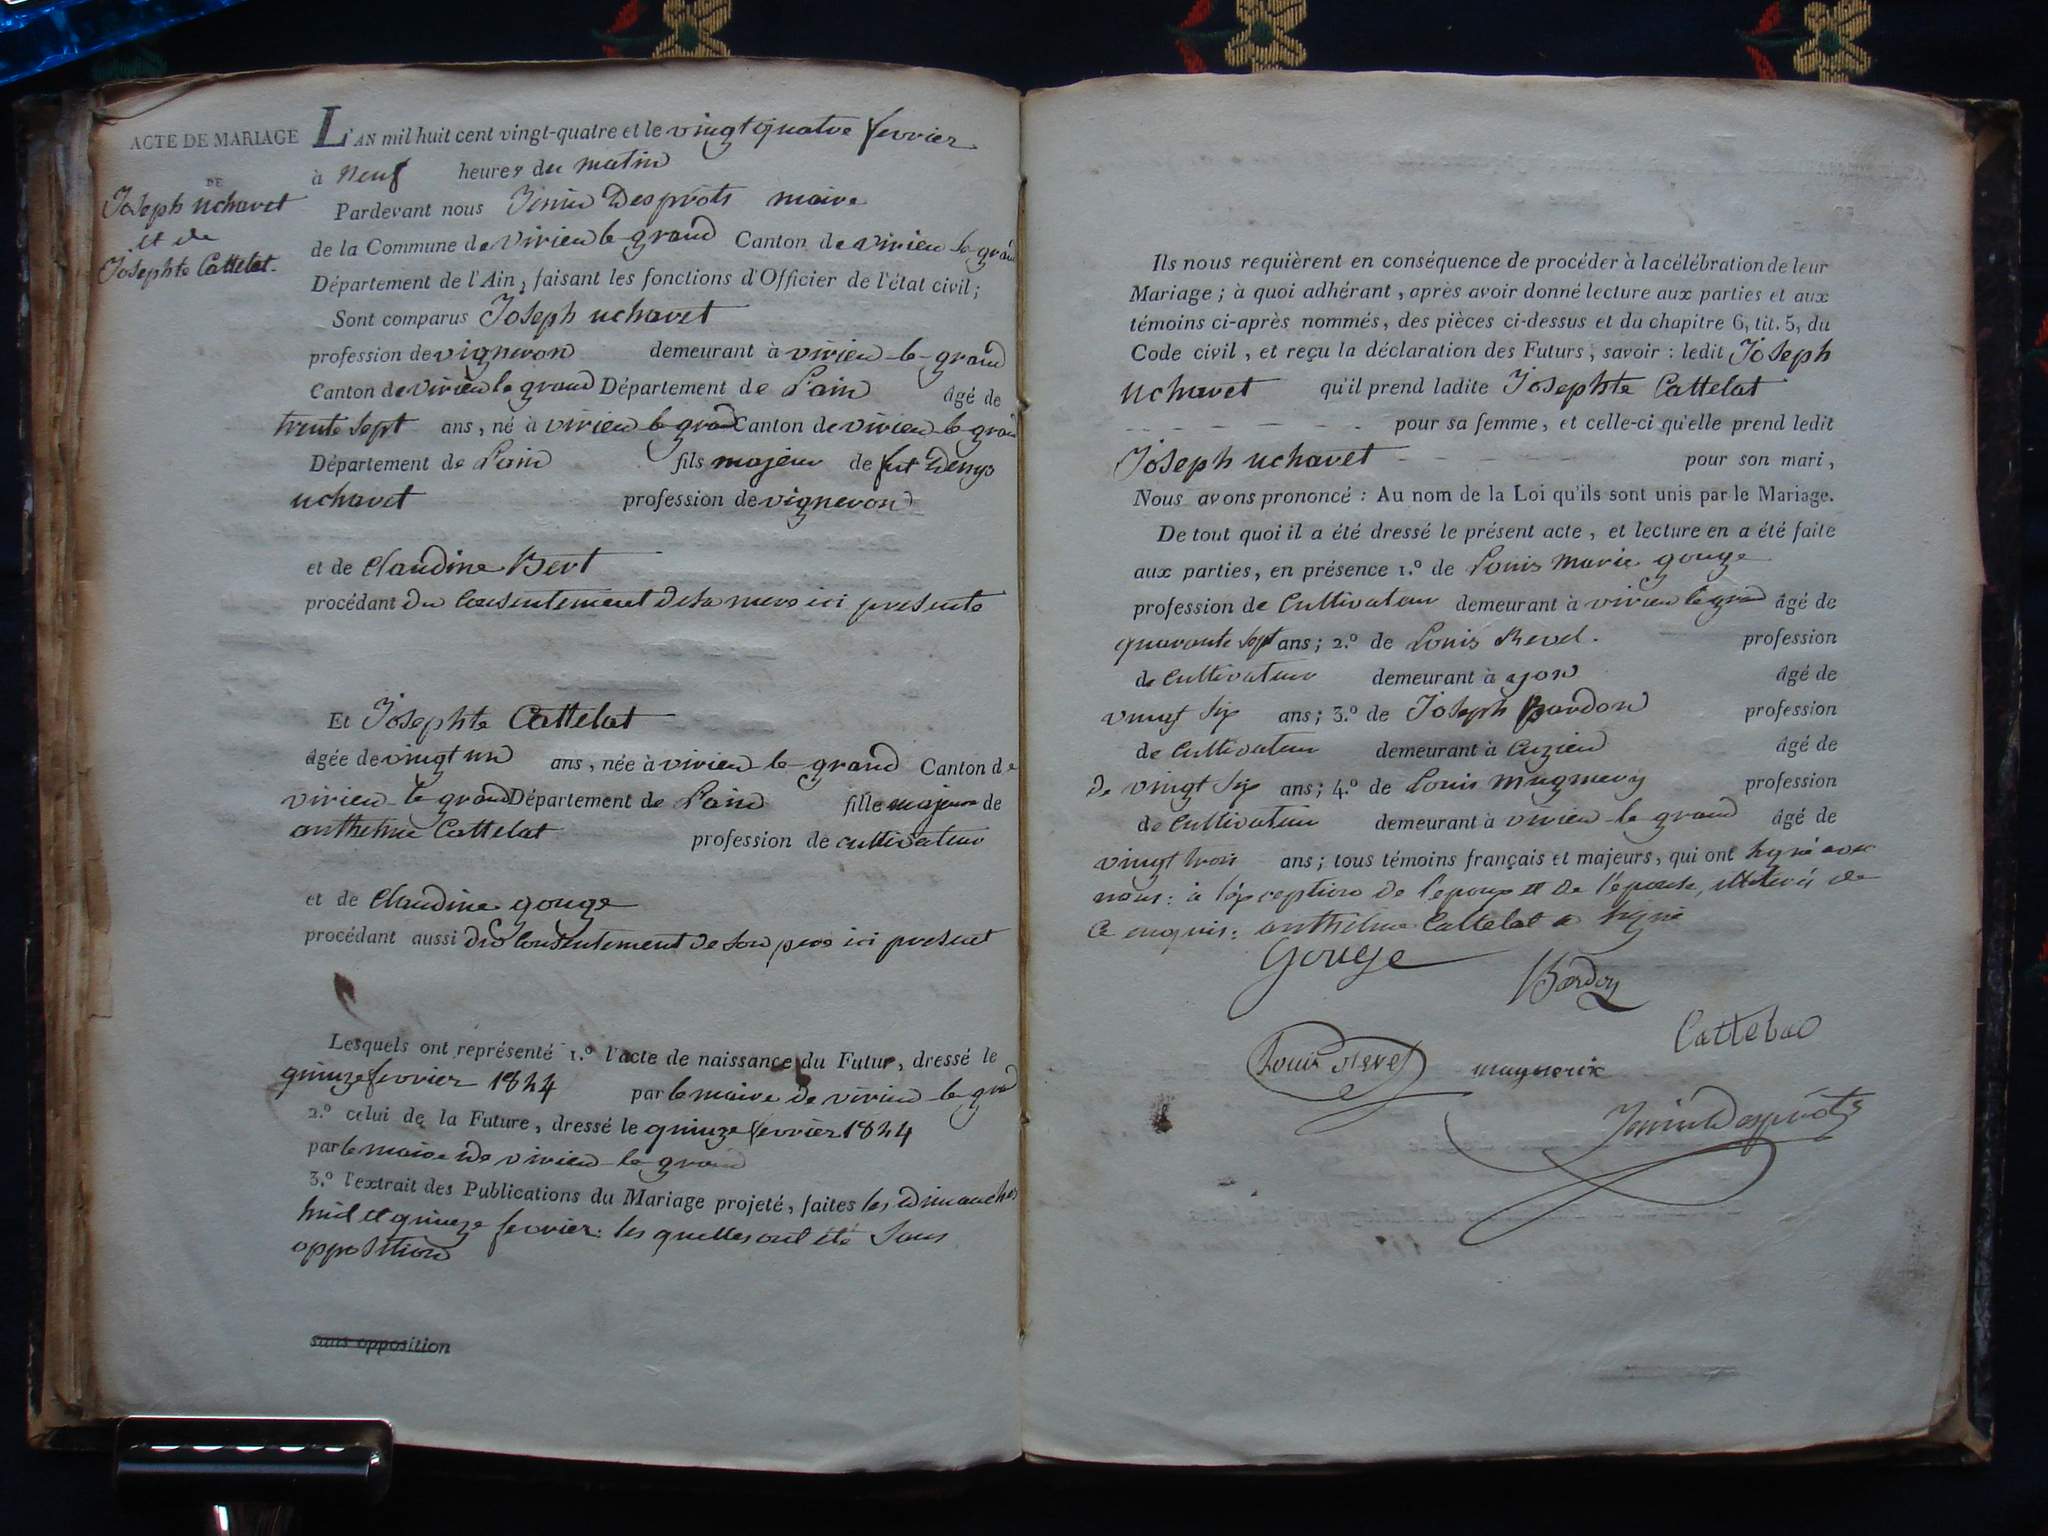 ACTE DE MARIAGE
DE
Joseph uchavet
et de
Josephte Cattelat.
L'AN mil huit cent vingt-quatre et le vingt quatre fevrier
à neuf heures du matin
Pardevant nous Jenin Desprots maire
de la Commune de virieu le grand Canton de virieu le grand
Département de l'Ain, faisant les fonctions d'Officier de l'état civil;
Sont comparus Joseph uchavet
profession de vigneron demeurant à virieu le grand
Canton de virieu le grand Département de L'ain âgé de
trente sept ans, né à virieu le grand Canton de virieu le grand
Département de L'ain fils majeur de fut Denys
uchavet profession de vigneron
et de Claudine Bert
procédant du Consentement de sa mere ici presente
Et Josephte Cattelat
âgée de vingt un ans, née à virieu le grand Canton de
virieu le grand Département de L'ain fille majeure de
anthelme Cattelat profession de cultivateur
et de Claudine gouge
procédant aussi du Consentement de son pere ici present
Lesquels ont représenté 1.º l'acte de naissance du Futur, dressé le
quinze fevrier 1824 par le maire de virieu le grand
2.º celui de la Future, dressé le quinze fevrier 1824
par le maire de virieu le grand
3.º l'extrait des Publications du Mariage projeté, faites les dimanches
huit et quinze fevrier: les quelles ont été Sans
opposition
sans opposition
Ils nous requièrent en conséquence de procéder à la célébration de leur
Mariage; à quoi adhérant, après avoir donné lecture aux parties et aux
témoins ci-après nommés, des pièces ci-dessus et du chapitre 6, tit. 5, du
Code civil, et reçu la déclaration des Futurs, savoir: ledit Joseph
uchavet qu'il prend ladite Josephte Cattelat
pour sa femme, et celle-ci qu'elle prend ledit
Joseph uchavet pour son mari,
Nous avons prononcé: Au nom de la Loi qu'ils sont unis par le Mariage.
De tout quoi il a été dressé le présent acte, et lecture en a été faite
aux parties, en présence 1.º de Louis marie gouge
profession de Cultivateur demeurant à virieu le grand âgé de
quarante sept ans; 2.º de Louis Revel. profession
de Cultivateur demeurant à yon âgé de
vingt six ans; 3.º de Joseph Bardon profession
de Cultivateur demeurant à Cuzieu âgé de
de vingt six ans; 4.º de Louis mugnery profession
de Cultivateur demeurant à virieu le grand âgé de
vingt trois ans; tous témoins français et majeurs, qui ont signé avec
nous: à l'exception de l'epoux et de l'epouse, illiterés de
ce enquis: anthelme Cattelat a signé
Gouge
Bardon
Cattelat
Louis Revel
Jenin Desprots